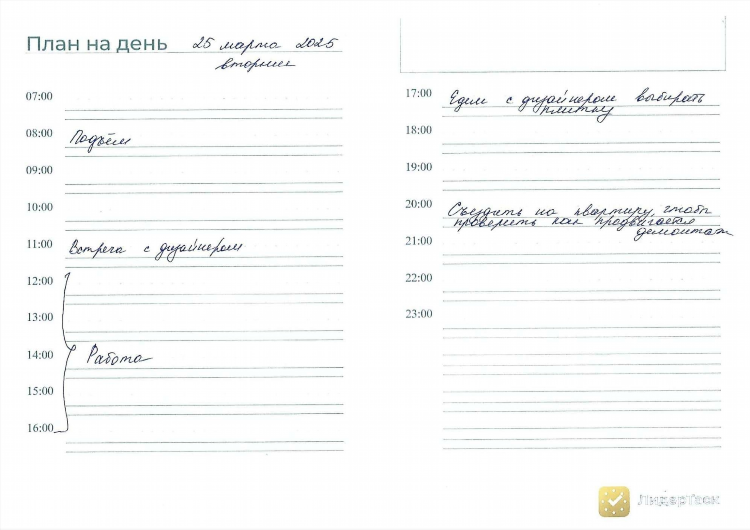 План на день 25 марта 2025
вторник
07:00
08:00 Подъём
09:00
10:00
11:00 Встреча с дизайнером
12:00
13:00
14:00 Работа
15:00
16:00
17:00 Едем с дизайнером выбирать
плитку
18:00
19:00
20:00 Съездить на квартиру, чтобы
проверить как продвигается
демонтаж
21:00
22:00
23:00
ЛидерТаск